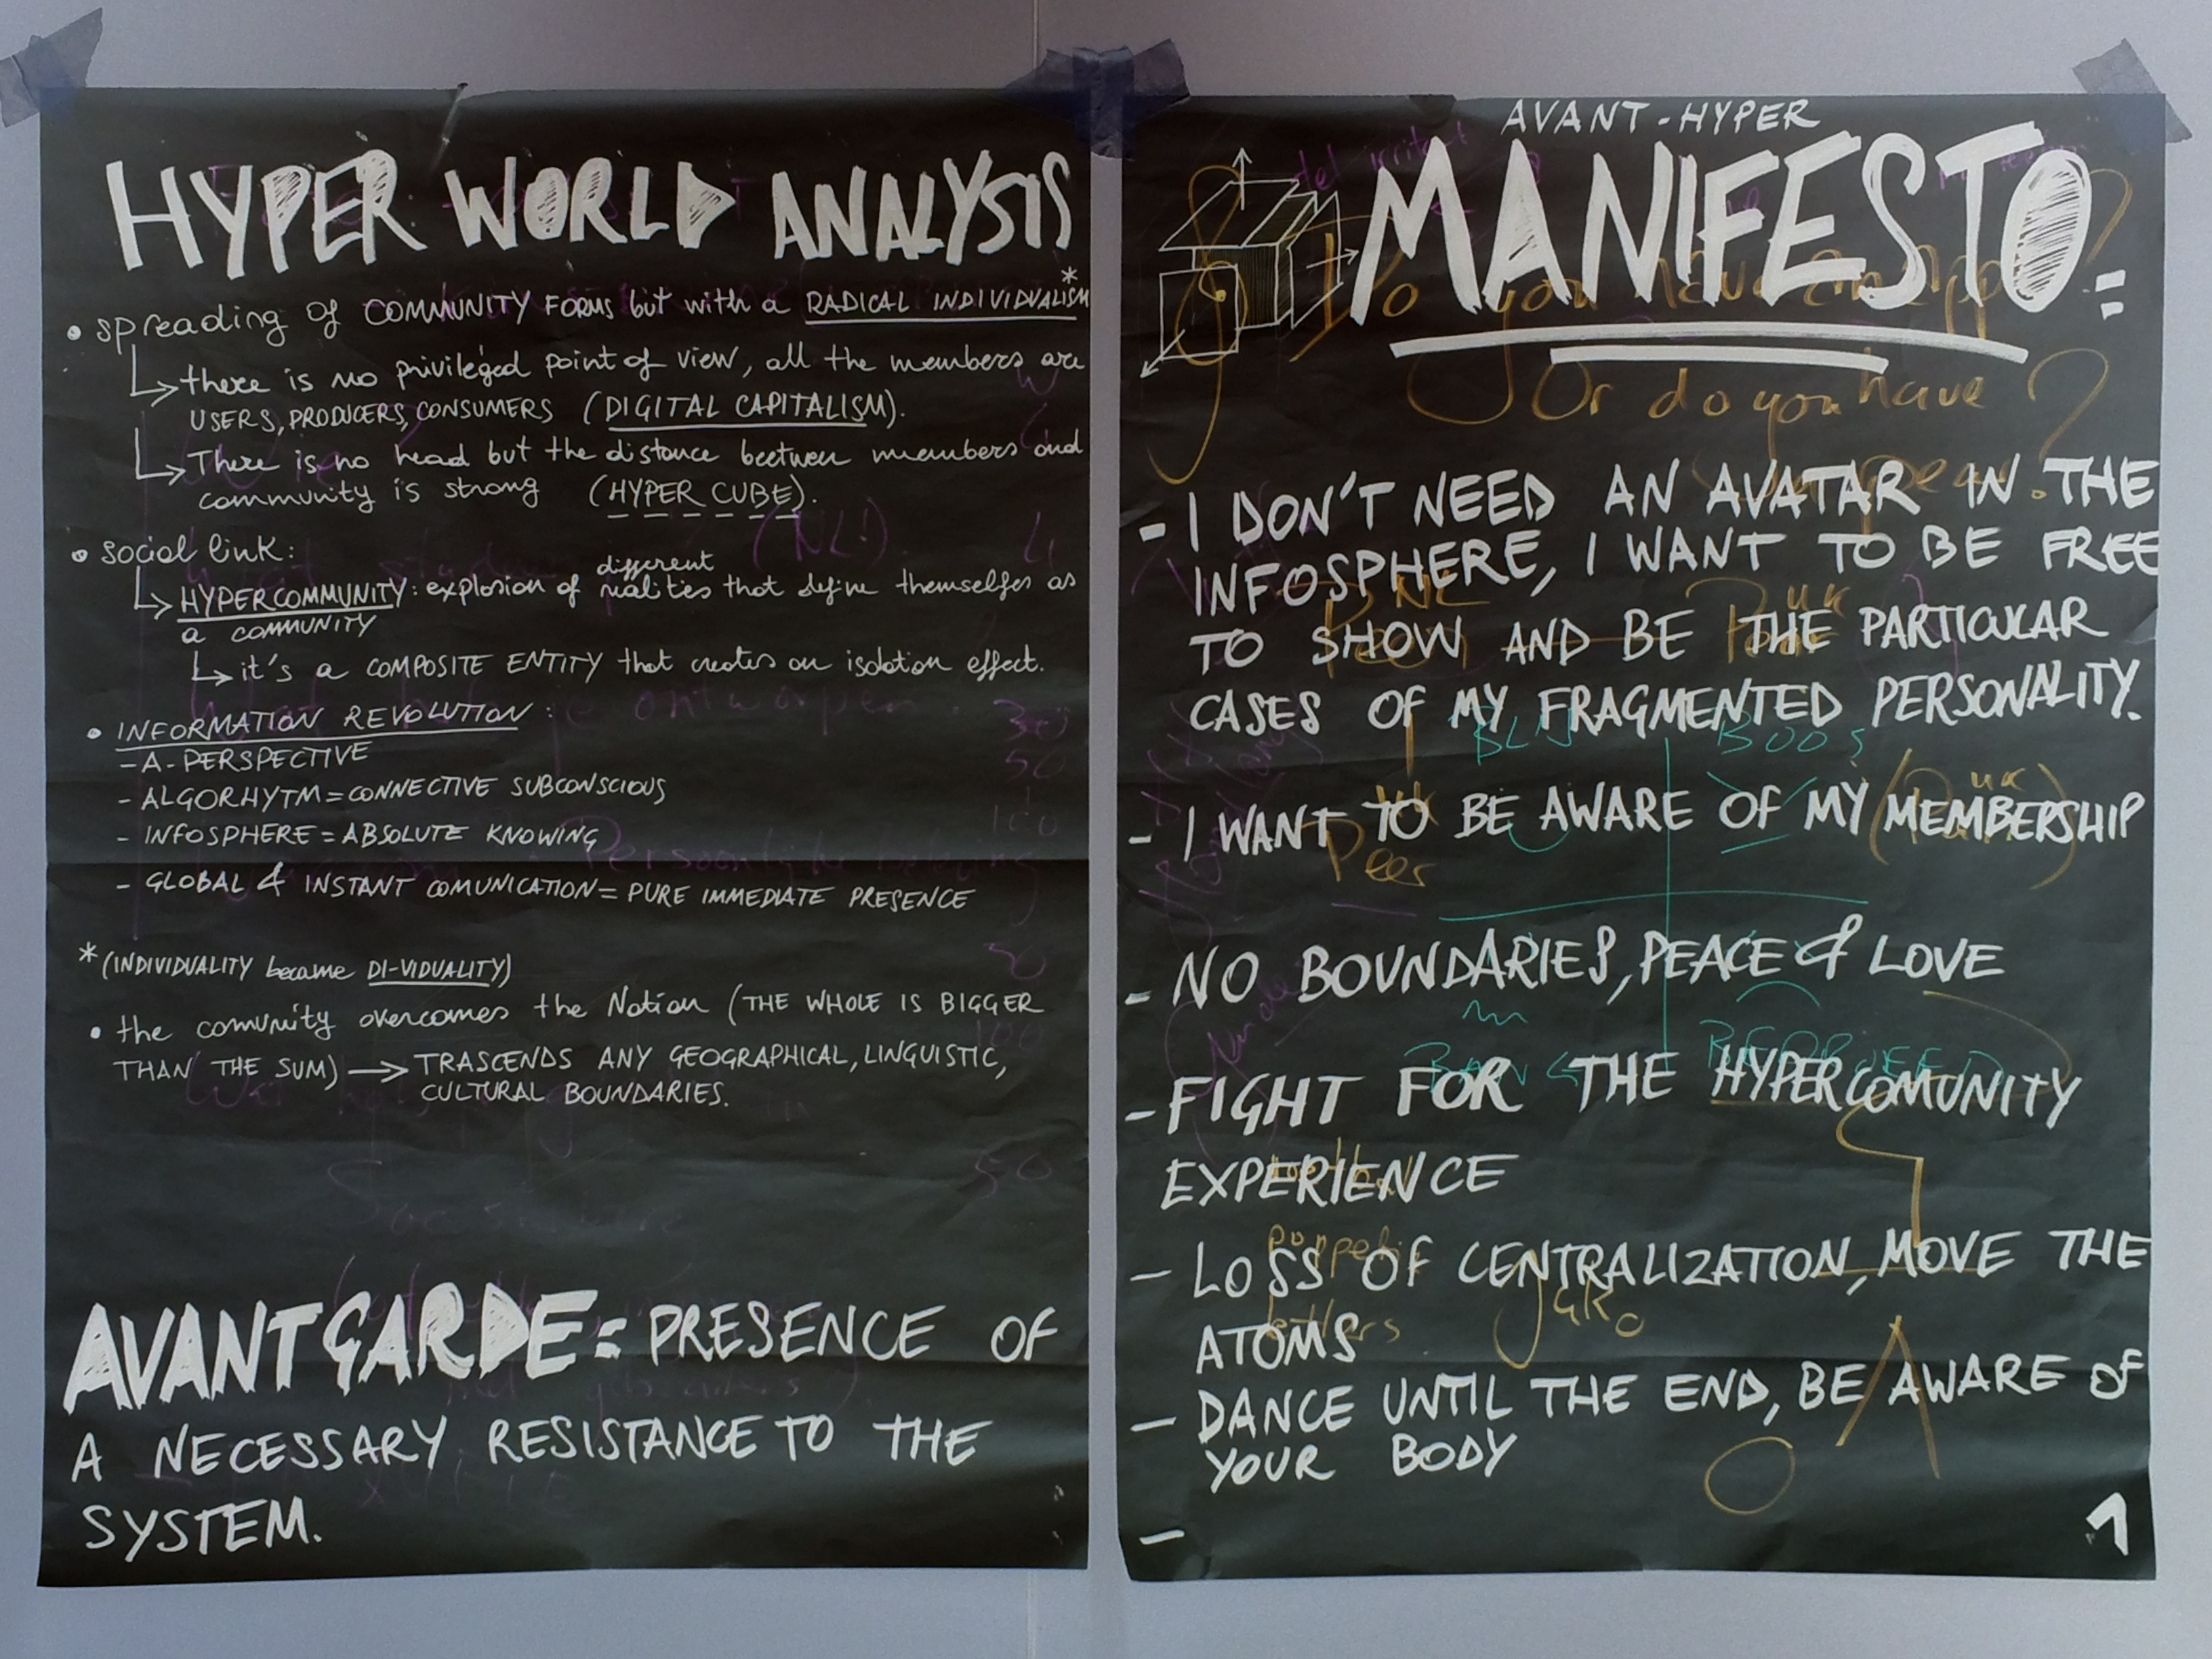 HYPER WORLD ANALYSIS
• spreading of COMMUNITY FORMS but with a RADICAL INDIVIDUALISM*
↳ there is no privileged point of view, all the members are
USERS, PRODUCERS, CONSUMERS (DIGITAL CAPITALISM).
↳ There is no head but the distance beetwen members and
community is strong (HYPER CUBE).
• social link:
different
↳ HYPERCOMMUNITY: explosion of realities that define themselfes as
a COMMUNITY
↳ it's a COMPOSITE ENTITY that creates an isolation effect.
• INFORMATION REVOLUTION:
- A-PERSPECTIVE
- ALGORHYTM = CONNECTIVE SUBCONSCIOUS
- INFOSPHERE = ABSOLUTE KNOWING
- GLOBAL & INSTANT COMUNICATION = PURE IMMEDIATE PRESENCE
* (INDIVIDUALITY became DI-VIDUALITY)
• the comunity overcomes the Nation (THE WHOLE IS BIGGER
THAN THE SUM) → TRASCENDS ANY GEOGRAPHICAL, LINGUISTIC,
CULTURAL BOUNDARIES.
AVANTGARDE = PRESENCE OF
A NECESSARY RESISTANCE TO THE
SYSTEM.
AVANT-HYPER
MANIFESTO:
Do you have an app?
Or do you have
- I DON'T NEED AN AVATAR IN THE
INFOSPHERE, I WANT TO BE FREE
TO SHOW AND BE THE PARTICULAR
CASES OF MY FRAGMENTED PERSONALITY.
- I WANT TO BE AWARE OF MY MEMBERSHIP
Peer
- NO BOUNDARIES, PEACE & LOVE
- FIGHT FOR THE HYPERCOMUNITY
EXPERIENCE
- LOSS OF CENTRALIZATION, MOVE THE
ATOMS
- DANCE UNTIL THE END, BE AWARE OF
YOUR BODY
-
1